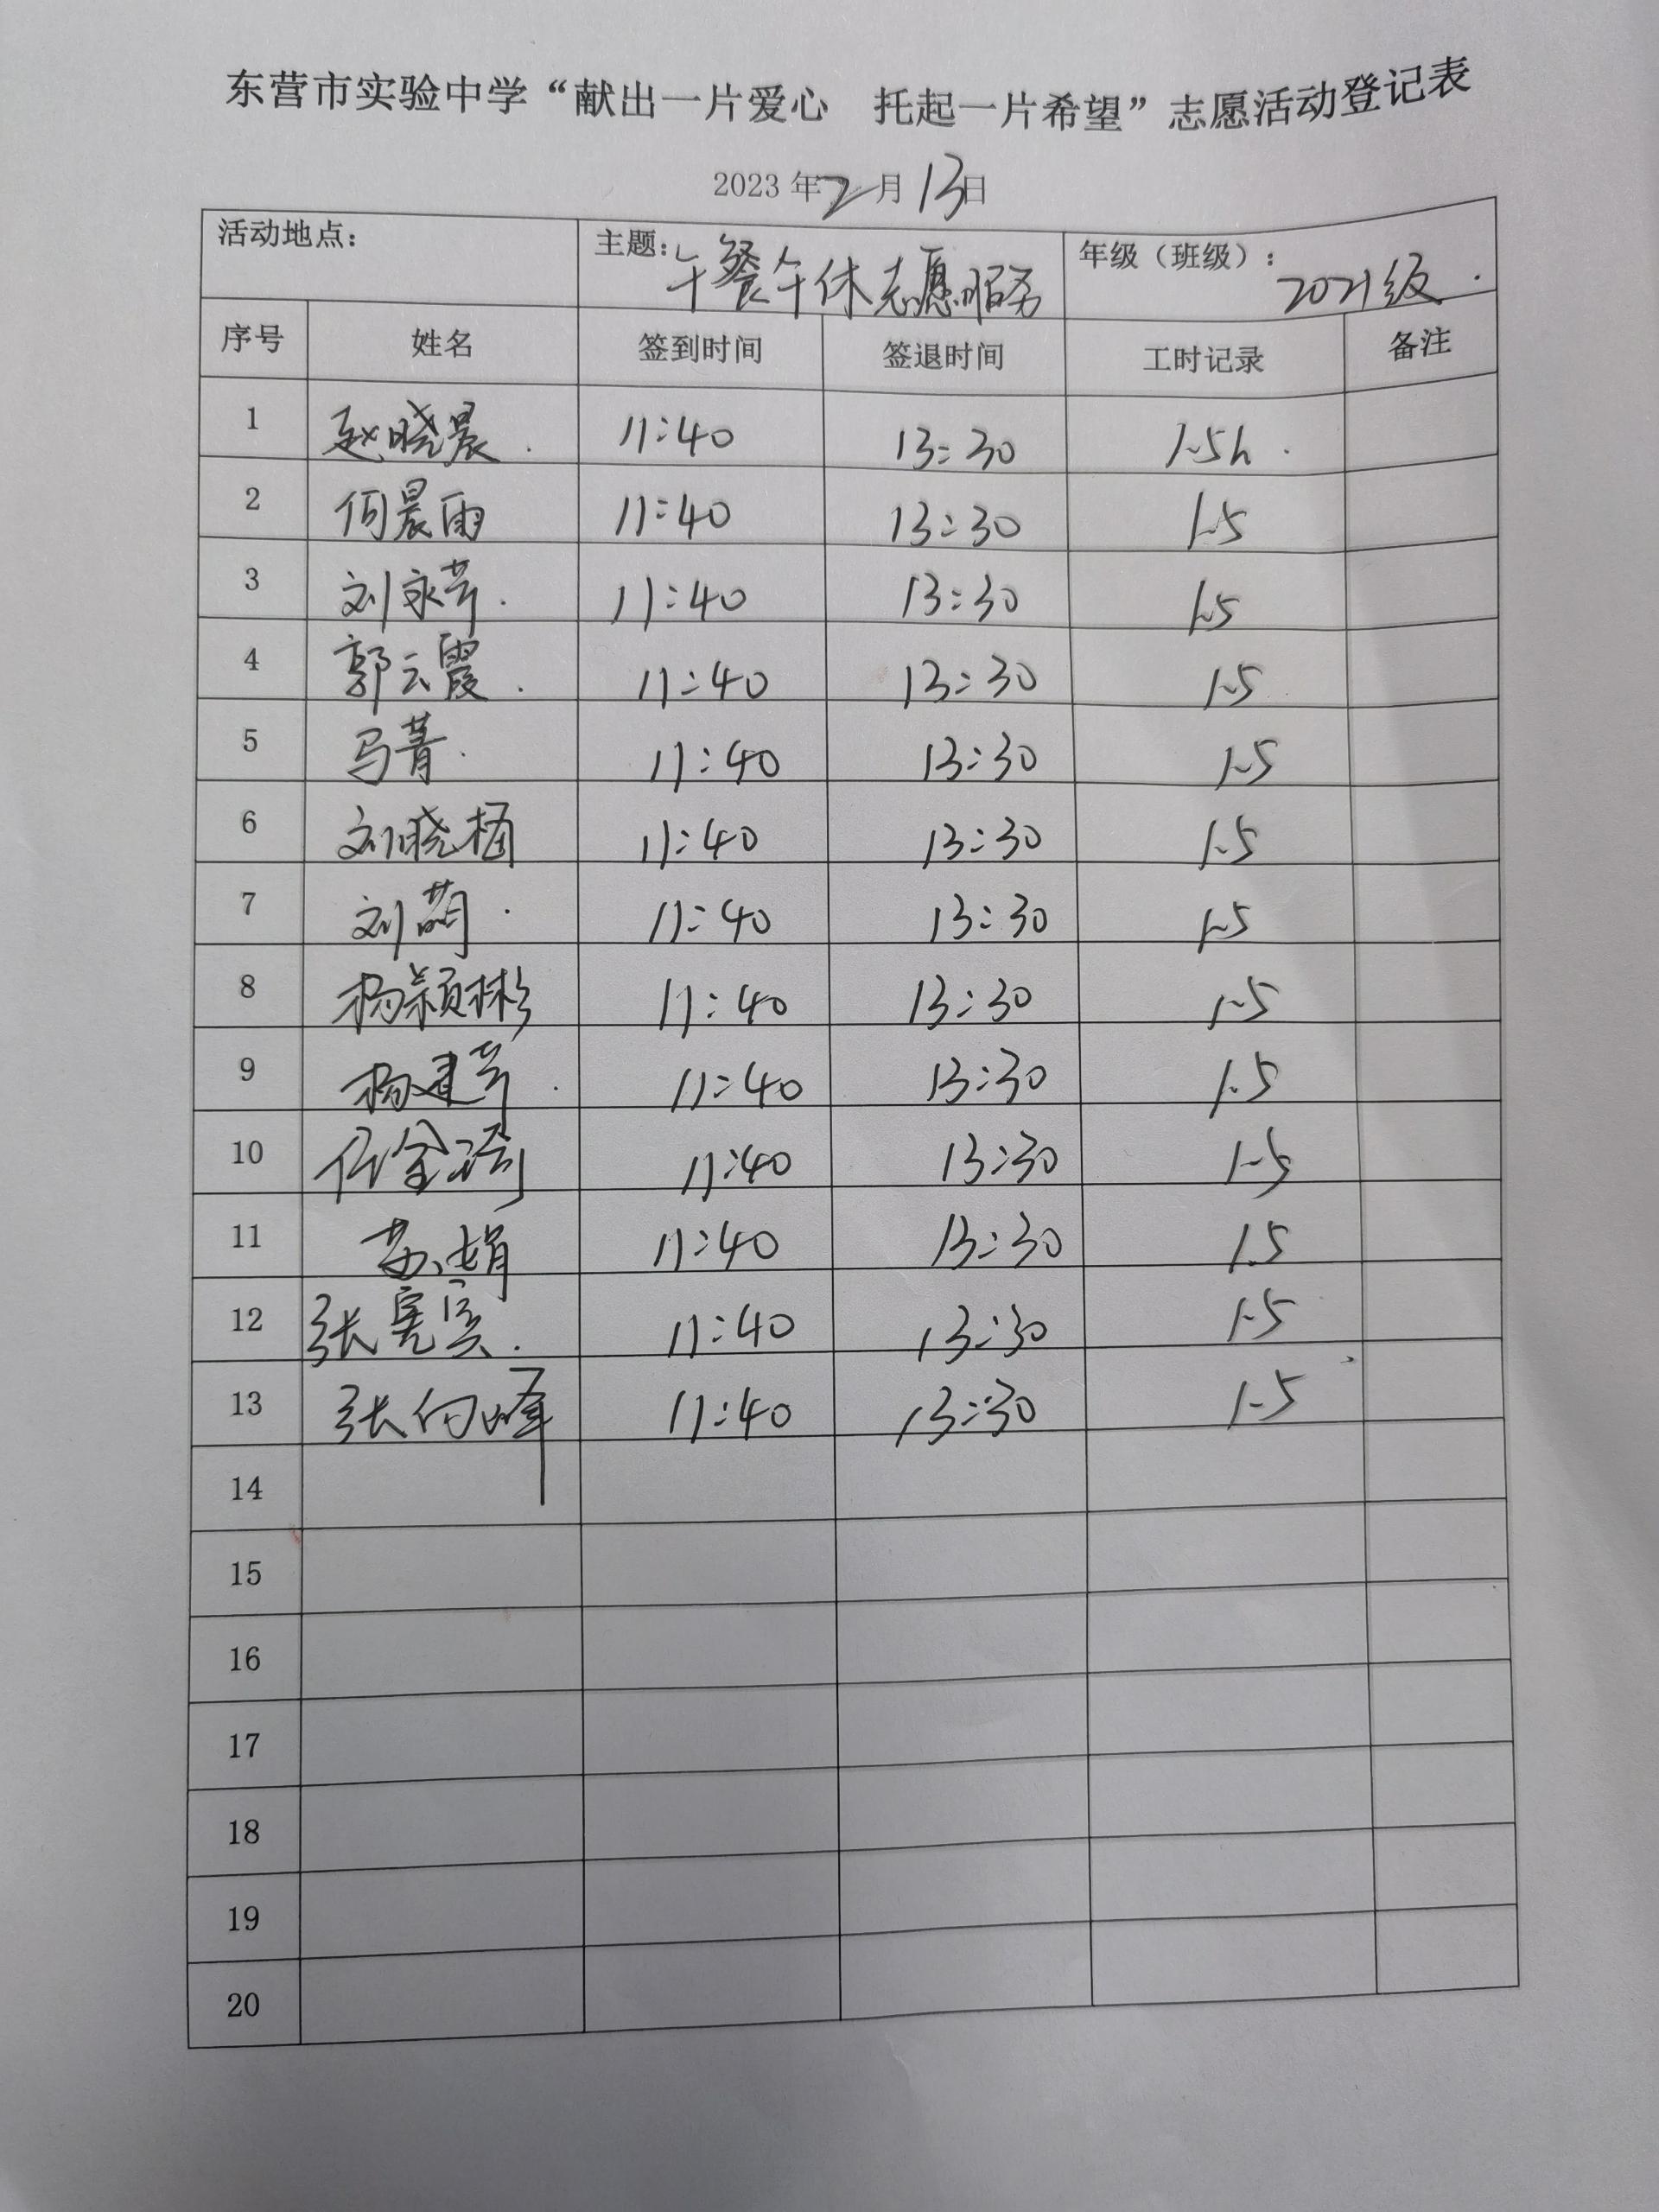 东营市实验中学“献出一片爱心 托起一片希望”志愿活动登记表
2023年2月13日
活动地点： 主题：午餐午休志愿服务 年级（班级）：2021级.
序号 姓名 签到时间 签退时间 工时记录 备注
1 赵晓晨. 11:40 13:30 1.5h.
2 何晨雨 11:40 13:30 1.5
3 刘永芹. 11:40 13:30 1.5
4 郭云霞. 11:40 13:30 1.5
5 马菁. 11:40 13:30 1.5
6 刘晓 11:40 13:30 1.5
7 刘萌. 11:40 13:30 1.5
8 杨颖彬 11:40 13:30 1.5
9 杨建芹. 11:40 13:30 1.5
10 任金 11:40 13:30 1.5
11 苏娟 11:40 13:30 1.5
12 张宪宾. 11:40 13:30 1.5
13 张向峰 11:40 13:30 1.5
14
15
16
17
18
19
20